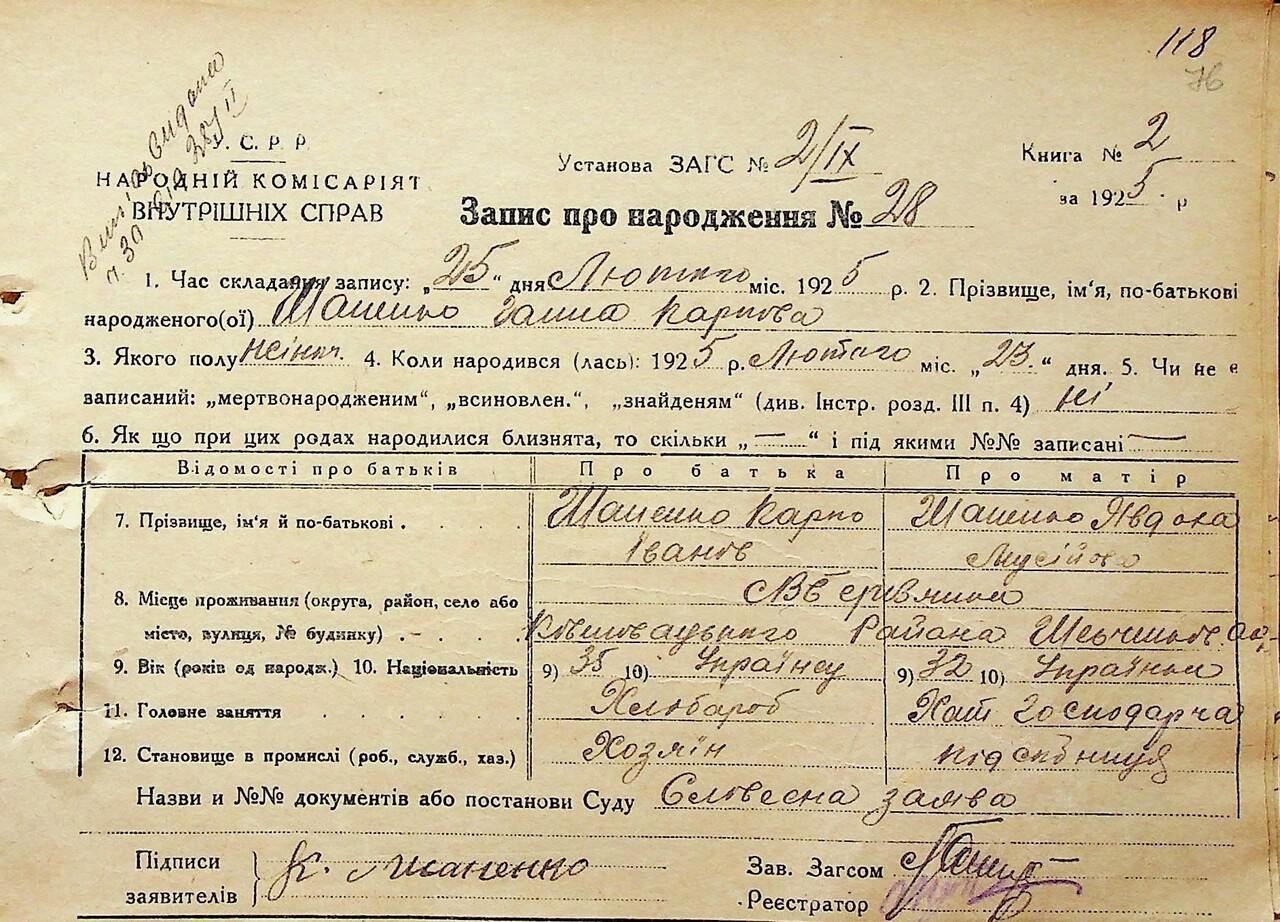 118
76
У. С. Р. Р.
НАРОДНІЙ КОМІСАРІЯТ
ВНУТРІШНІХ СПРАВ
Установа ЗАГС № 2/IX
Книга № 2
за 1925 р
Запис про народження № 28
1. Час складання запису: „25" дня Лютого міс. 1925 р. 2. Прізвище, ім'я, по-батькові
народженого(ої) Шаненко Ганна Карпова
3. Якого полу жіноч. 4. Коли народився (лась): 1925 р. Лютого міс. „23." дня. 5. Чи не є
записаний: „мертвонародженим", „всиновлен.", „знайденям" (див. Інстр. розд. III п. 4) ні
6. Як що при цих родах народилися близнята, то скільки „—" і під якими №№ записані —
Відомості про батьків Про батька Про матір
7. Прізвище, ім'я й по-батькові . . . . Шаненко Карпо Шаненко Явдоха
Іванов Мусійова
8. Місце проживання (округа, район, село або
місто, вулиця, № будинку) . . . . Района
9. Вік (років од народж.) 10. Національність 9) 35 10) Українец 9) 32 10) Українка
11. Головне заняття . . . . . . Хлібароб Хатн Господарча
12. Становище в промислі (роб., служб., хаз.) Хозяїн підсобниця
Назви и №№ документів або постанови Суду Словесна заява
Підписи
заявителів К. Шаненко
Зав. Загсом
Реєстратор